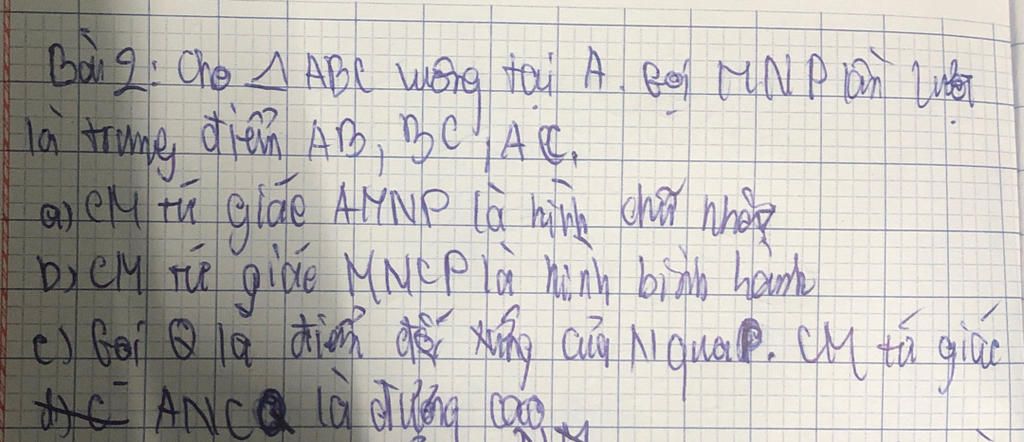 Bài 2: Cho △ ABC vuông tại A. Gọi M N P lần lượt
là trung điểm AB, BC, AC.
a) CM tứ giác AMNP là hình chữ nhật
b) CM tứ giác MNCP là hình bình hành
c) Gọi Q là điểm đối xứng của N qua P. CM tứ giác
ANCQ là đường cao